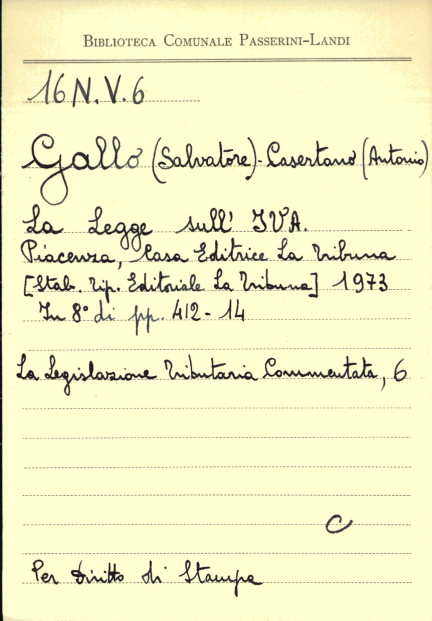 BIBLIOTECA COMUNALE PASSERINI-LANDI
16 N.V.6
Gallo (Salvatore)-Casertano (Antonio)
La Legge sull' IVA.
Piacenza, Casa Editrice La Tribuna
[Stab. Tip. Editoriale La Tribuna] 1973
In 8° di pp. 412-14
La Legislazione Tributaria Commentata, 6
C
Per Diritto di Stampa